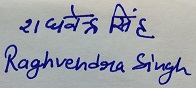 राघवेन्द्र सिंह
Raghvendra Singh